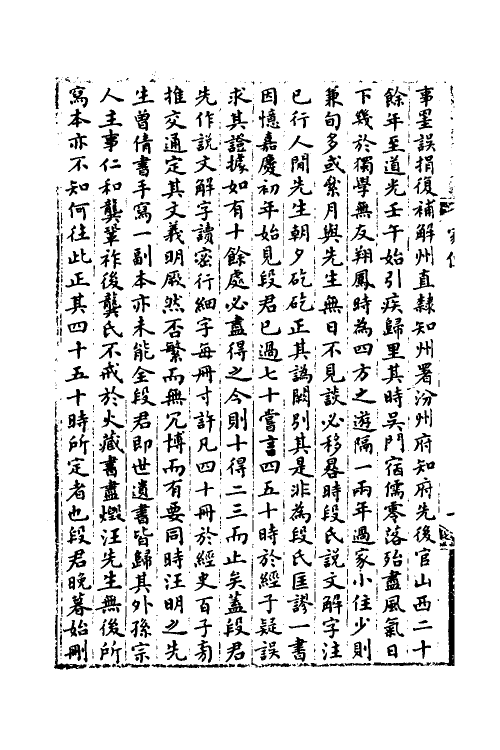 事墨誤捐復補解州直隸知州署汾州府知府先後官山西二十
餘年至道光壬午始引疾歸里其時吳門宿儒零落殆盡風氣日
下幾於獨學無友翔鳳時為四方之遊隔一兩年過家小住少則
兼旬多或絫月與先生無日不見談必移晷時段氏說文解字注
已行人間先生朝夕矻矻正其譌闕別其是非為段氏匡謬一書
因憶嘉慶初年始見段君已過七十嘗言四五十時於經子疑誤
求其證據如有十餘處必盡得之今則十得二三而止矣蓋段君
先作說文解字讀密行細字每冊寸許凡四十冊於經史百子旁
推交通定其文義明厥然否繁而無冗博而有要同時汪明之先
生曾倩書手寫一副本亦未能全段君即世遺書皆歸其外孫宗
人主事仁和龔鞏祚後龔氏不戒於火藏書盡燬汪先生無後所
寫本亦不知何往此正其四十五十時所定者也段君晚暮始刪
家傳
一